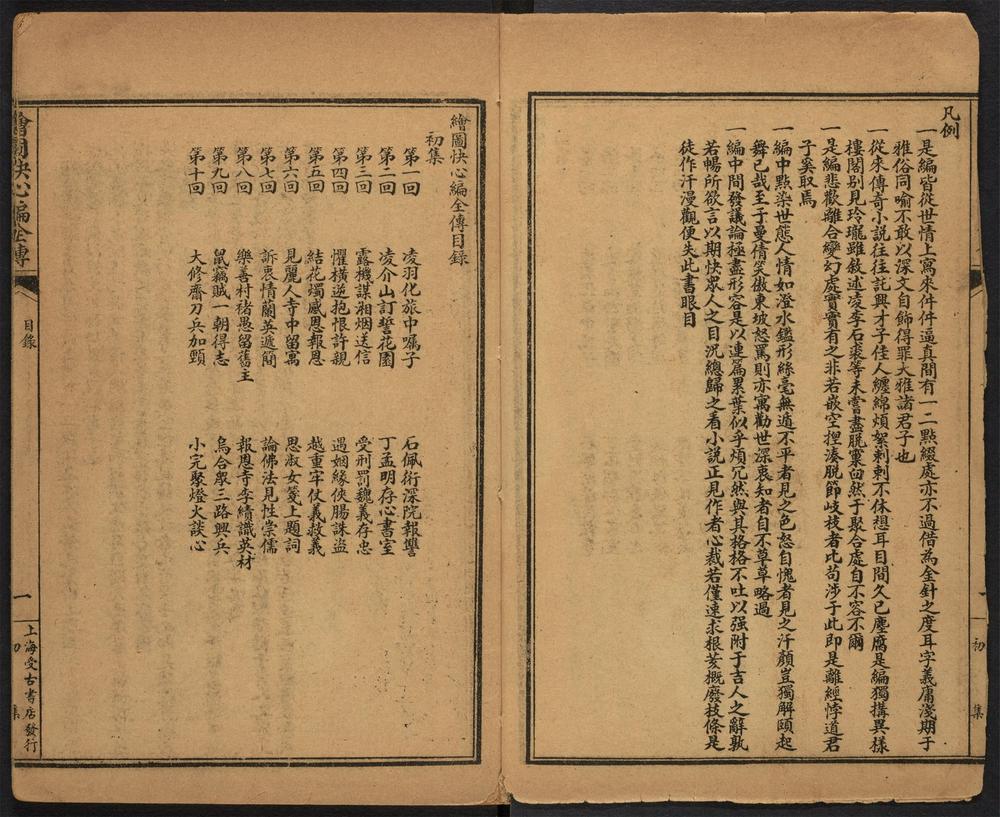 凡例
一是編皆從世情上寫來件件逼真間有一二點綴處亦不過借為金針之度耳字義庸淺期于
雅俗同喻不敢以深文自飾得罪大雅諸君子也
一從來傳奇小說往往託興才子佳人纏綿煩絮剌剌不休想耳目間久已塵腐是編獨搆異樣
樓閣別見玲瓏雖敘述凌李石裘等未嘗盡脫窠臼然于聚合處自不容不爾
一是編悲歡離合變幻處實實有之非若嵌空捏湊脫節岐枝者比苟涉于此即是離經悖道君
子奚取焉
一編中點染世態人情如澄水鑑形絲毫無遁不平者見之色怒自愧者見之汗顏豈獨解頤起
舞已哉至于曼倩笑傲東坡怒罵則亦寓勸世深衷知者自不草草略過
一編中間發議論極盡形容是以連篇累葉似乎煩冗然與其格格不吐以强附于吉人之辭孰
若暢所欲言以期快衆人之目況總歸之看小說正見作者心裁若僅速求根荄概廢枝條是
徒作汗漫觀便失此書眼目
初集
繪圖快心編全傳目錄
初集
第一回 凌羽化旅中囑子 石佩珩深院報讐
第二回 凌介山訂誓花園 丁孟明存心書室
第三回 露機謀湘烟送信 受刑罰魏義存忠
第四回 懼橫逆抱恨許親 遇姻緣俠腸誅盜
第五回 結花燭感恩報恩 越重牢仗義救義
第六回 見麗人寺中留寓 思淑女箋上題詞
第七回 訴衷情蘭英遞簡 論佛法見性崇儒
第八回 樂善村褚愚留舊主 報恩寺李績識英材
第九回 鼠竊賊一朝得志 烏合衆三路興兵
第十回 大修齋刀兵加頸 小完聚燈火談心
繪圖快心編全傳
目錄
一
初集
上海受古書店發行